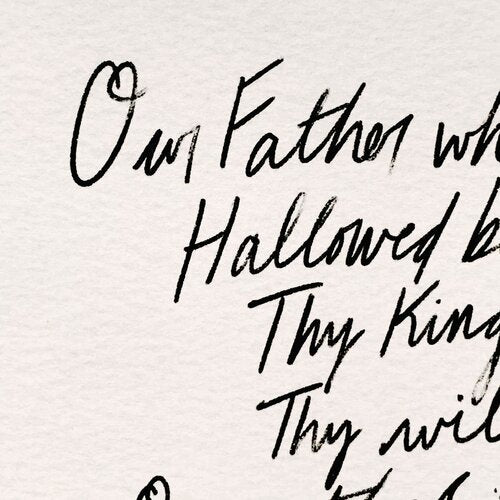 Our Father wh
Hallowed b
Thy King
Thy wil